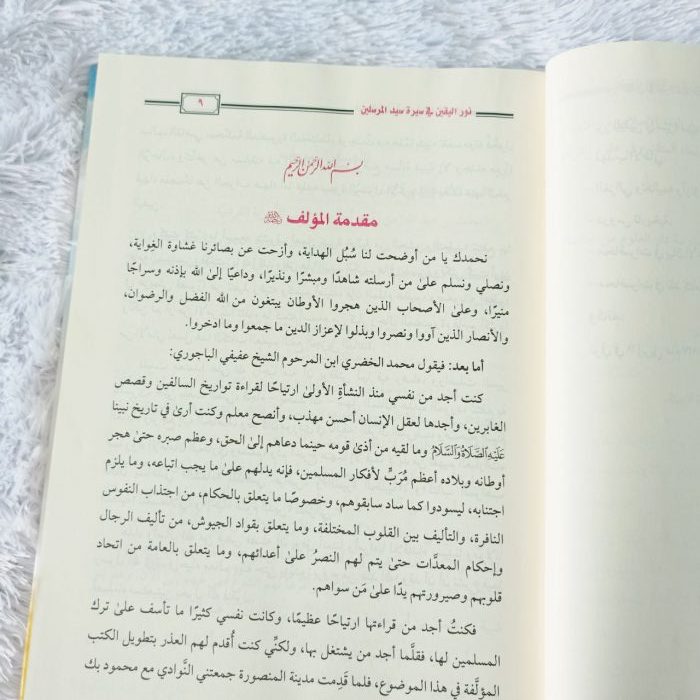 نور اليقين في سيرة سيد المرسلين
٩
بسم الله الرحمن الرحيم
مقدمة المؤلف
نحمدك يا من أوضحت لنا سُبُل الهداية، وأزحت عن بصائرنا غشاوة الغِواية،
ونصلي ونسلم علىٰ من أرسلته شاهدًا ومبشرًا ونذيرًا، وداعيًا إلىٰ الله بإذنه وسراجًا
منيرًا، وعلىٰ الأصحاب الذين هجروا الأوطان يبتغون من الله الفضل والرضوان،
والأنصار الذين آووا ونصروا وبذلوا لإعزاز الدين ما جمعوا وما ادخروا.
أما بعد: فيقول محمد الخضري ابن المرحوم الشيخ عفيفي الباجوري:
كنت أجد من نفسي منذ النشأةِ الأولىٰ ارتياحًا لقراءة تواريخ السالفين وقصص
الغابرين، وأجدها لعقل الإنسان أحسن مهذب، وأنصح معلم وكنت أرىٰ في تاريخ نبينا
عَلَيْهِ الصَّلَاةُ وَالسَّلَامُ وما لقيه من أذىٰ قومه حينما دعاهم إلىٰ الحق، وعظم صبره حتىٰ هجر
أوطانه وبلاده أعظم مُرَبٍّ لأفكار المسلمين، فإنه يدلهم علىٰ ما يجب اتباعه، وما يلزم
اجتنابه، ليسودوا كما ساد سابقوهم، وخصوصًا ما يتعلق بالحكام، من اجتذاب النفوس
النافرة، والتأليف بين القلوب المختلفة، وما يتعلق بقواد الجيوش، من تأليف الرجال
وإحكام المعدَّات حتىٰ يتم لهم النصرُ علىٰ أعدائهم، وما يتعلق بالعامة من اتحاد
قلوبهم وصيرورتهم يدًا علىٰ مَن سواهم.
فكنتُ أجد من قراءتها ارتياحًا عظيمًا، وكانت نفسي كثيرًا ما تأسف علىٰ ترك
المسلمين لها، فقلَّما أجد من يشتغل بها، ولكنِّي كنت أُقدم لهم العذر بتطويل الكتب
المؤلَّفة في هذا الموضوع، فلما قَدِمت مدينة المنصورة جمعتني النَّوادي مع محمود بك